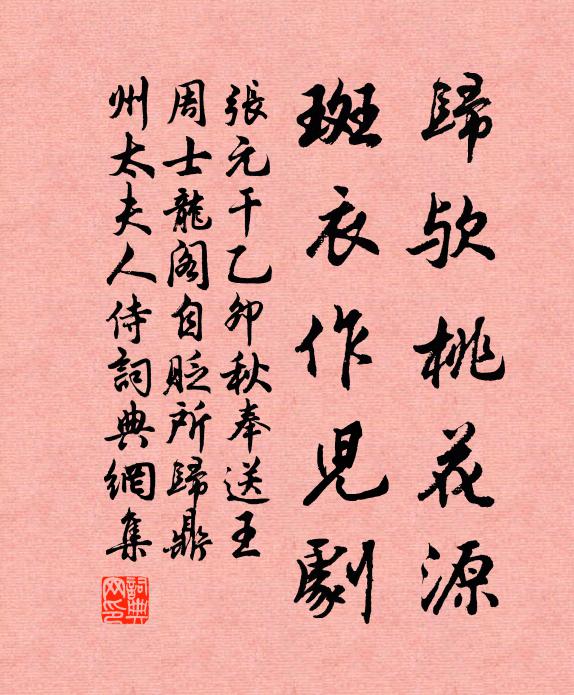 歸欤桃花源
斑衣作児劇
張元干乙卯秋奉送王
周士龍阁自貶所歸鼎
州太夫人侍詞典網集
詞典网印